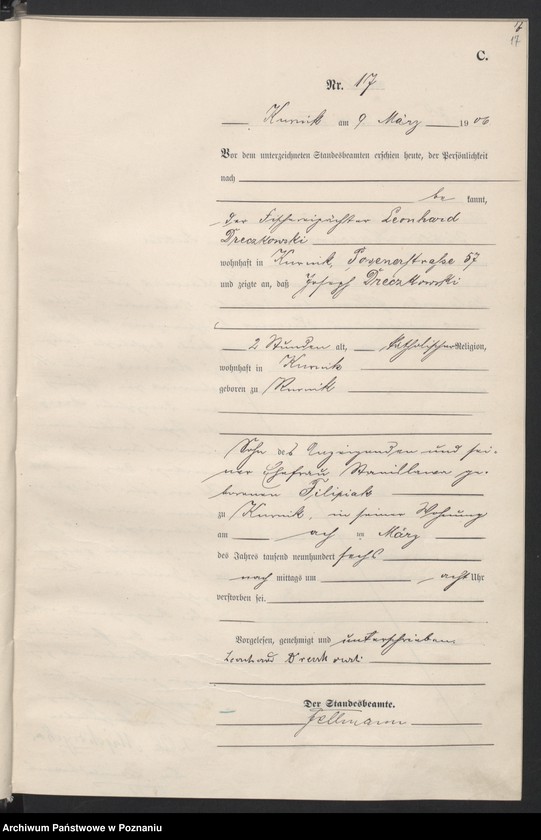 17
C.
Nr. 17
Kurnik am 9 März 1906
Vor dem unterzeichneten Standesbeamten erschien heute, der Persönlichkeit
nach
be kannt,
der Fischereipächter Leonhard
Dreczkowski
wohnhaft in Kurnik, Posenerstrasse 57
und zeigte an, daß Joseph Dreczkowski
2 Stunden alt, katholischer Religion,
wohnhaft in Kurnik
geboren zu Kurnik
Sohn des Anzeigenden und sei-
ner Ehefrau Stanislawa ge-
borenen Filipiak
zu Kurnik, in seiner Wohnung
am acht ten März
des Jahres tausend neunhundert sechs
nach mittags um acht Uhr
verstorben sei.
Vorgelesen, genehmigt und unterschrieben
Leonhard
Der Standesbeamte.
Fellmann
Archiwum Państwowe w Poznaniu